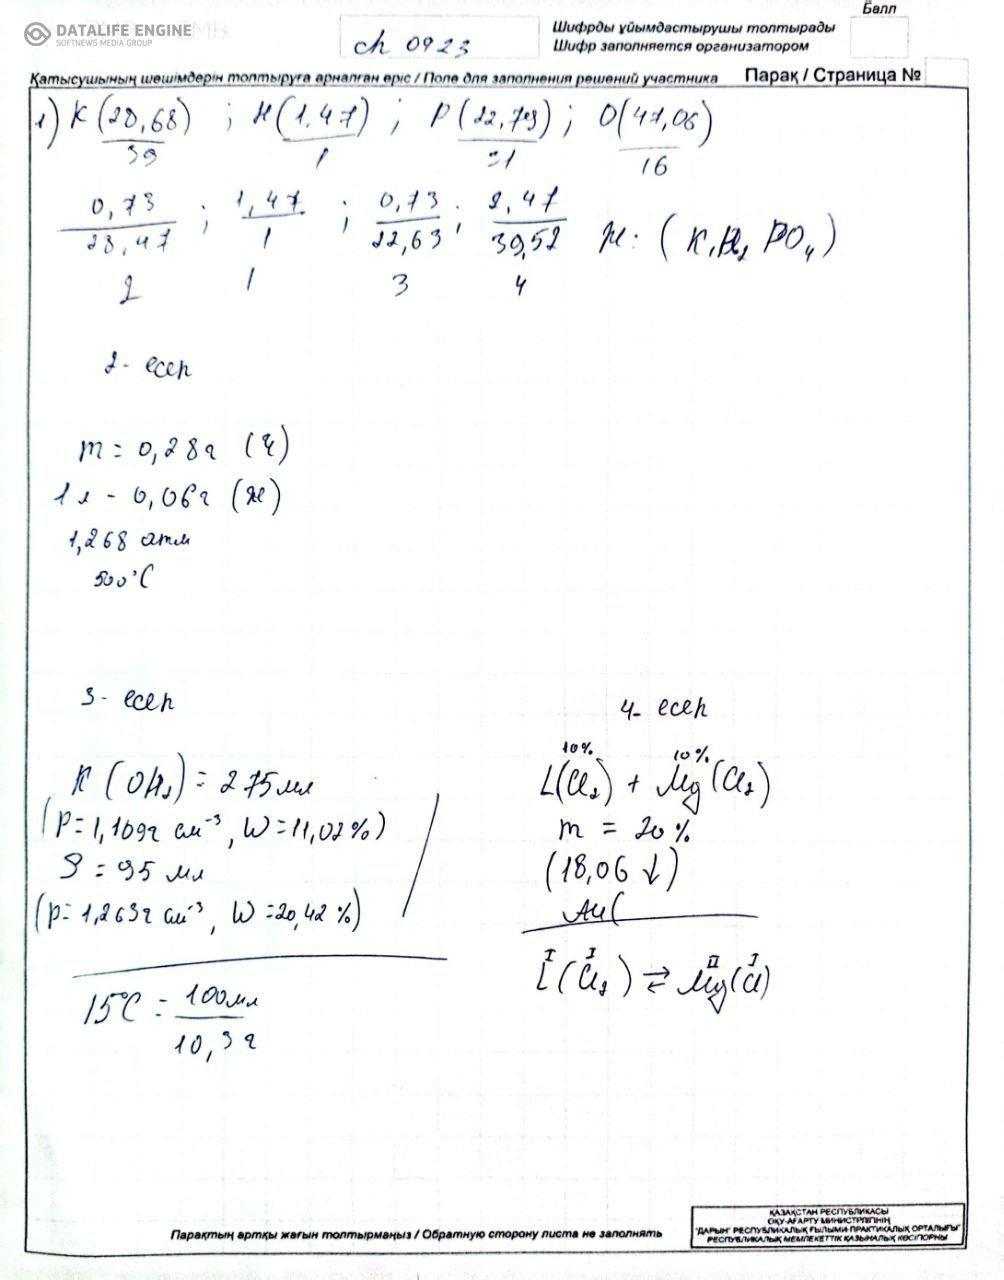 DATALIFE ENGINE
SOFTNEWS MEDIA GROUP
Балл
ch 0923
Шифрды ұйымдастырушы толтырады
Шифр заполняется организатором
Қатысушының шешімдерін толтыруға арналған өріс / Поле для заполнения решений участника
Парақ / Страница №
1) K(28,68)/39 ; H(1,47)/1 ; P(22,79)/31 ; O(47,06)/16
0,73/28,47 ; 1,47/1 ; 0,73/22,63 ; 2,47/39,52
Ж: (K1H2PO4)
2 1 3 4
2- есеп
m = 0,28г (Ч)
1 л - 0,06г (Ж)
1,268 атм
500°C
3- есеп
K(OH2) = 275мл
(P=1,109г см⁻³, W=11,02%)
S = 95 мл
(p=1,263г см⁻³, W=20,42%)
15°C = 100мл/10,3г
4- есеп
10% 10%
L(Cl2) + Mg(Cl2)
m = 20%
(18,06↓)
I I II I
L(Cl2) ⇄ Mg(Cl)
Парақтың артқы жағын толтырмаңыз / Обратную сторону листа не заполнять
ҚАЗАҚСТАН РЕСПУБЛИКАСЫ
ОҚУ-АҒАРТУ МИНИСТРЛІГІНІҢ
"ДАРЫН" РЕСПУБЛИКАЛЫҚ ҒЫЛЫМИ-ПРАКТИКАЛЫҚ ОРТАЛЫҒЫ"
РЕСПУБЛИКАЛЫҚ МЕМЛЕКЕТТІК ҚАЗЫНАЛЫҚ КӘСІПОРНЫ